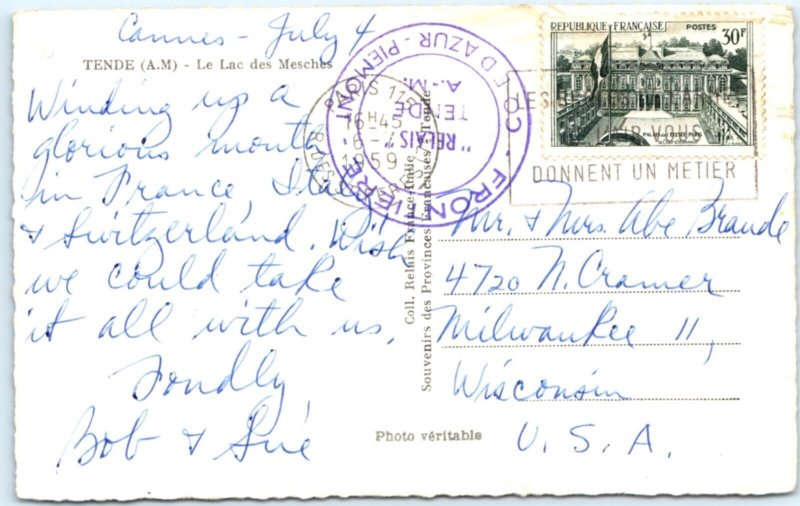 Cannes - July 4
TENDE (A.M) - Le Lac des Mesches
Winding up a
glorious month
in France, Italy
& Switzerland. Wish
we could take
it all with us.
Fondly,
Bob & Sue
Coll. Relais France-Italie
Souvenirs des Provinces Françaises - Tende
Photo véritable
CÔTE D'AZUR - PIEMONT
FRONTIERE
"RELAIS"
TENDE
A.-M.
PARIS
16H45
1959
REPUBLIQUE FRANÇAISE POSTES
30F
PALAIS DE L'ELYSEE PARIS
DONNENT UN METIER
Mr. & Mrs. Abe Braude
4720 N. Cramer
Milwaukee 11,
Wisconsin
U. S. A.